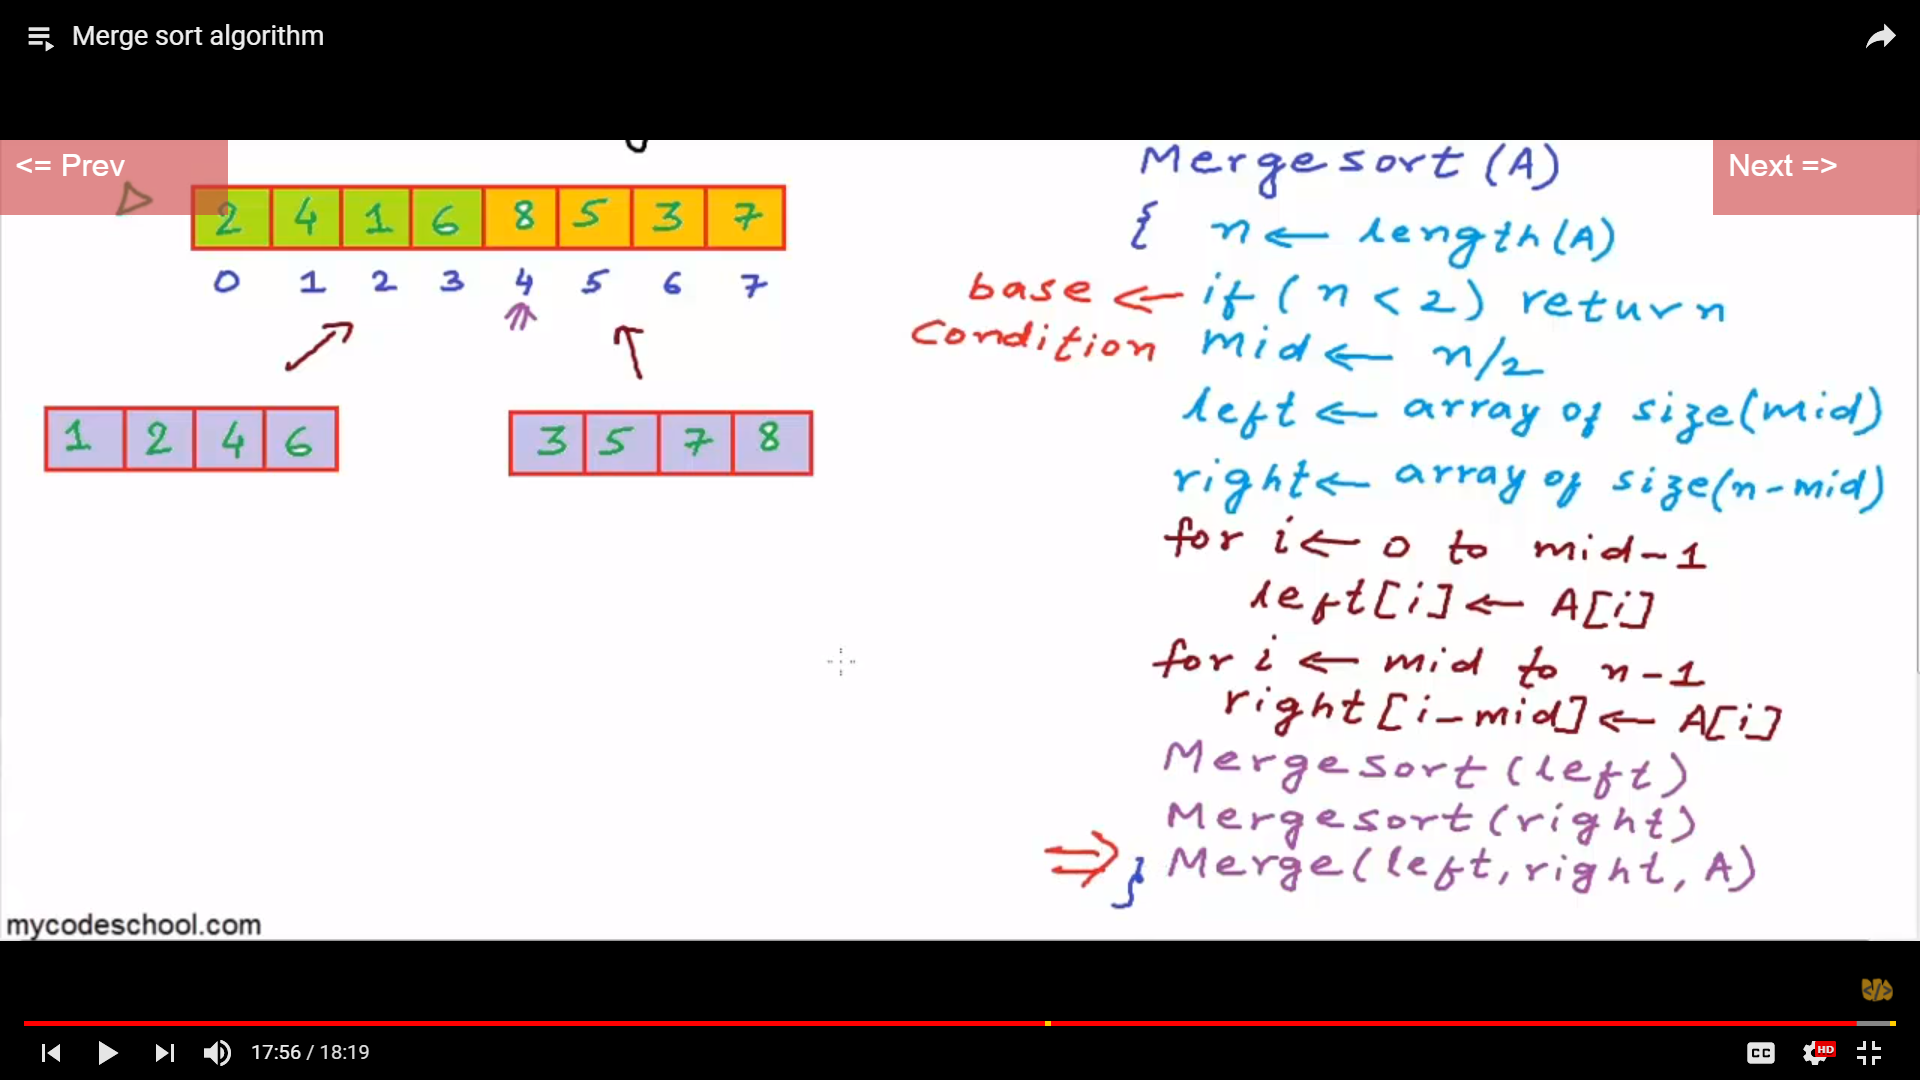 Merge sort algorithm
<= Prev
Next =>
A
2 4 1 6 8 5 3 7
0 1 2 3 4 5 6 7
1 2 4 6
3 5 7 8
Mergesort (A)
{ n ← length(A)
base ← if ( n < 2 ) return n
Condition
mid ← n/2
left ← array of size(mid)
right ← array of size(n-mid)
for i ← 0 to mid-1
left[i] ← A[i]
for i ← mid to n-1
right[i-mid] ← A[i]
Mergesort (left)
Mergesort (right)
⇒ } Merge(left, right, A)
mycodeschool.com
</>
17:56 / 18:19
CC
HD